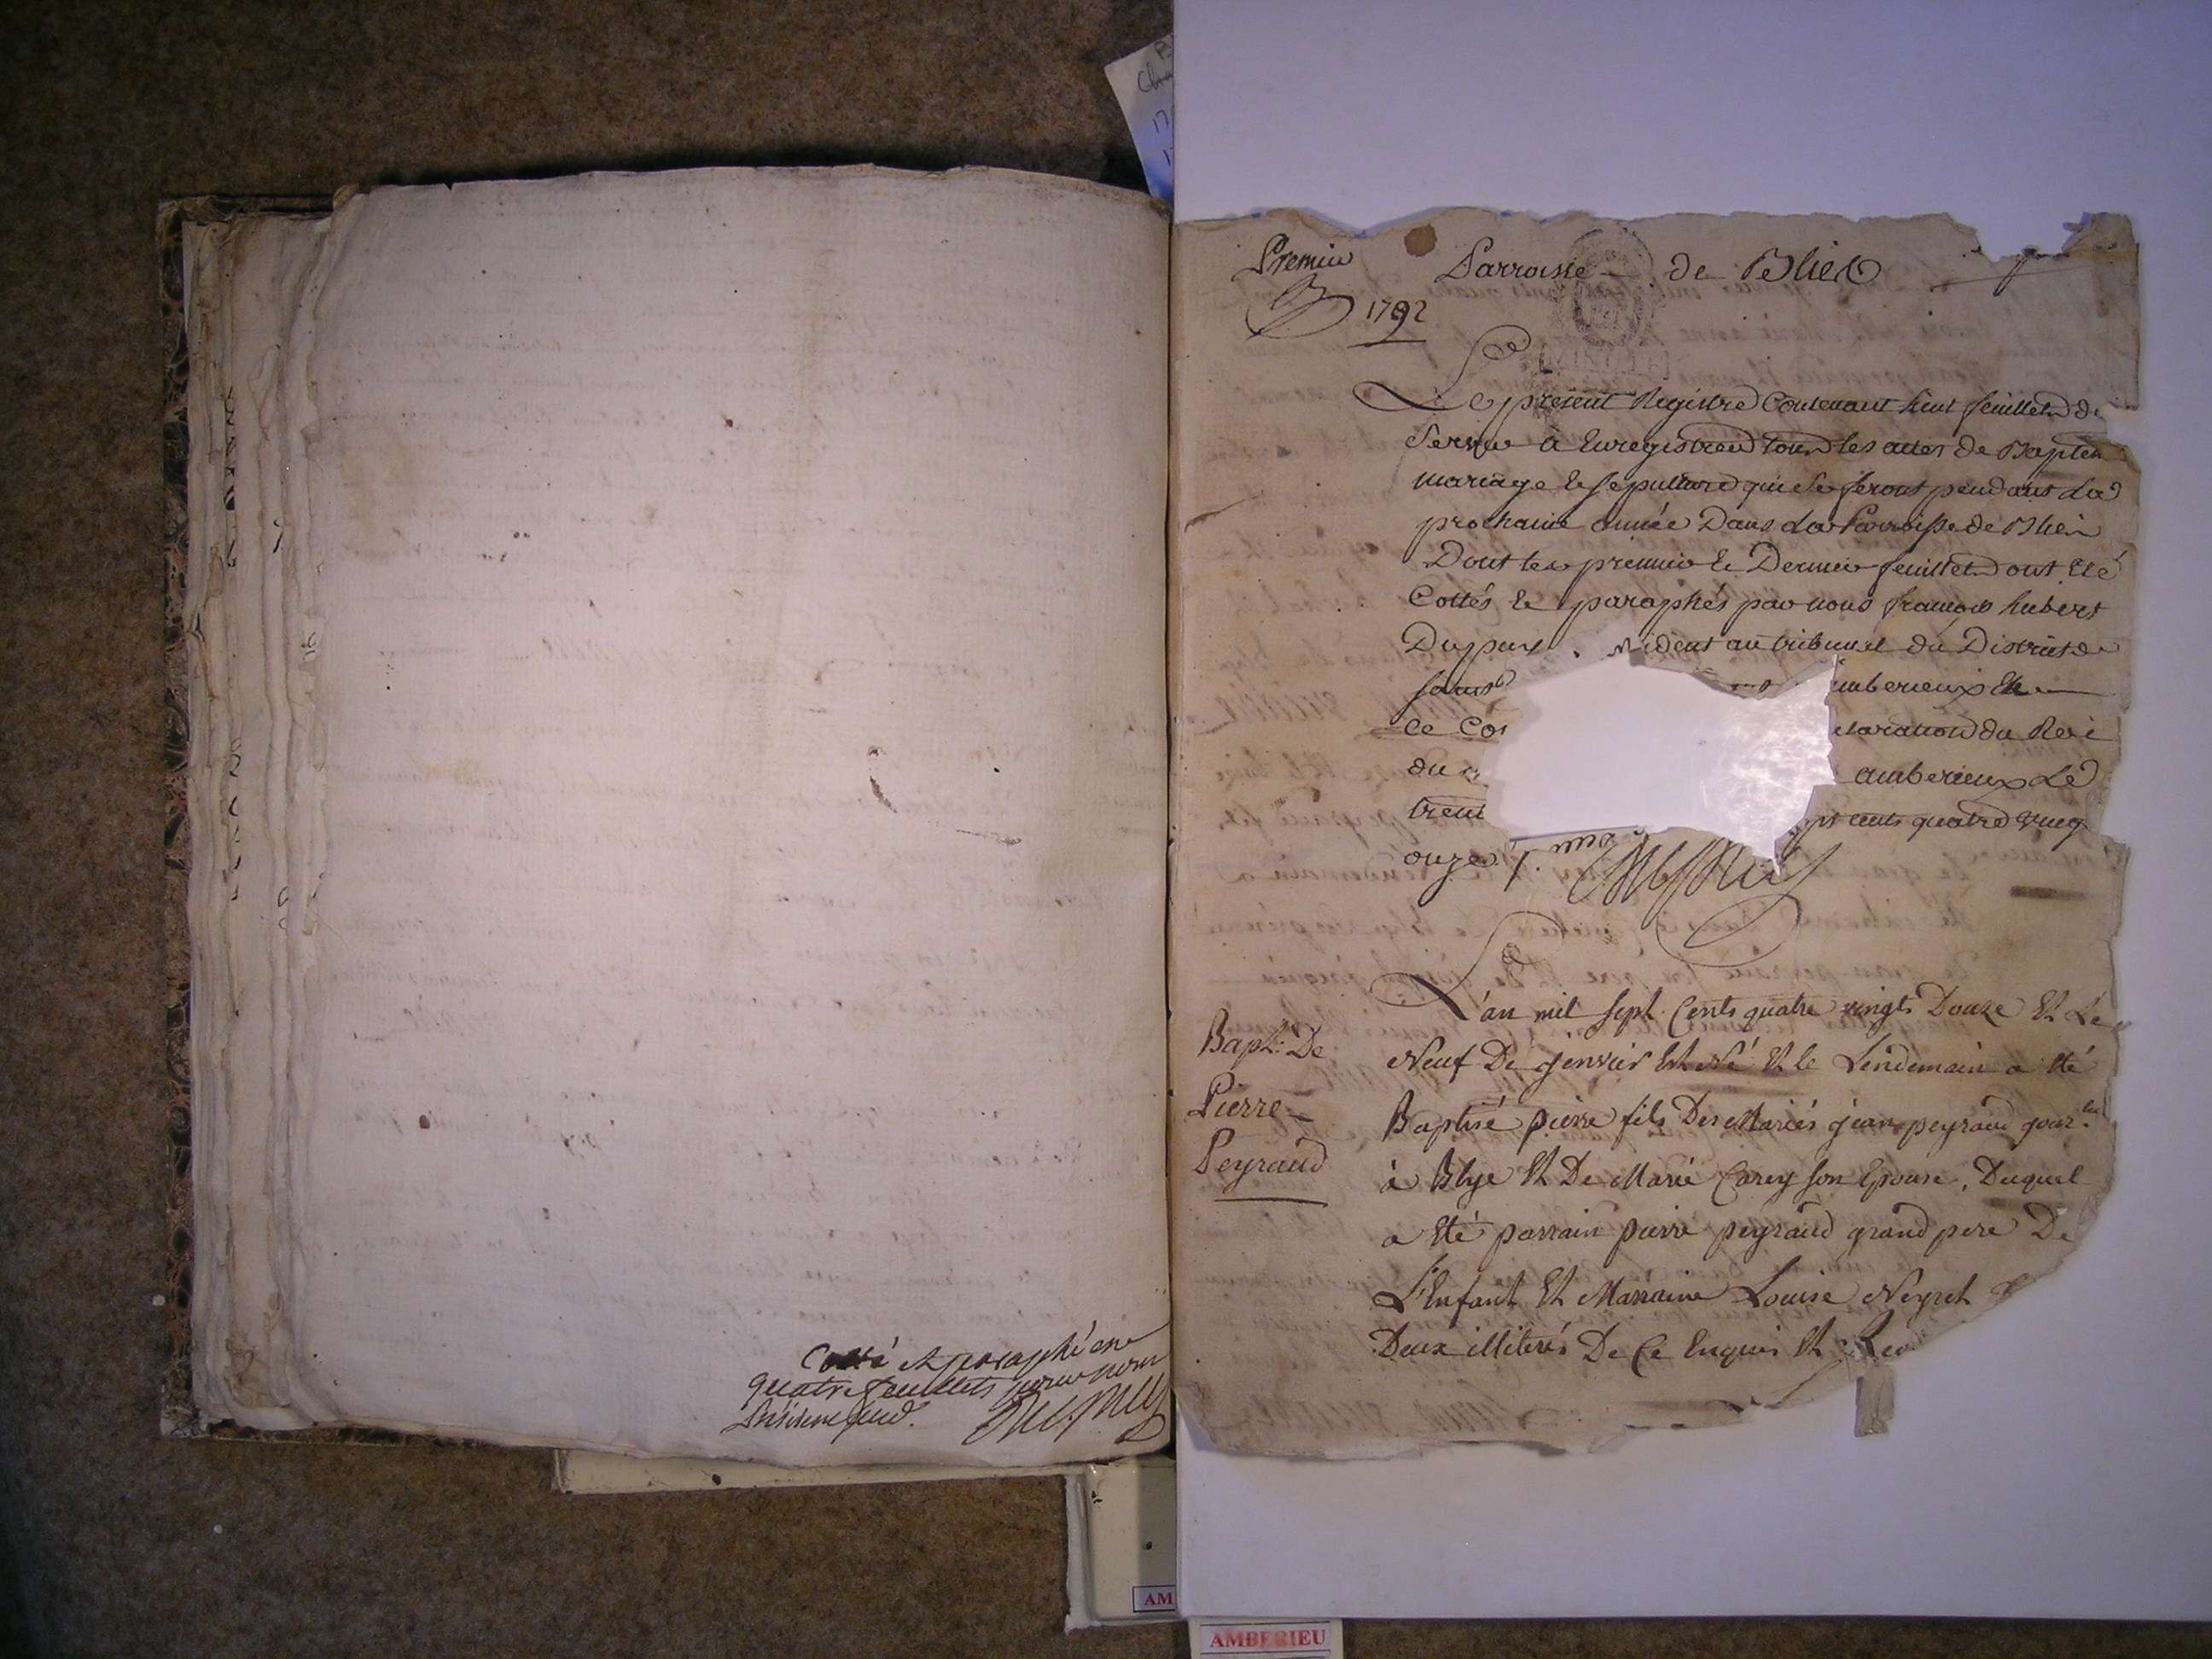 Cotté et paraphé en
quatre feuillets par nous
Président
Premier
Parroisse de Blies
1792
Le présent Registre Contenant huit feuillets de
Servir à Enregistrer tous les actes de Baptem
mariage et sepulture qui se feront pendant La
prochaine année Dans La Parroisse de Blien
Dont les premier et Dernier feuillets ont été
Cottés et paraphés par nous françois hubert
Dupuy sident au tribunal du District de
saint amberieux Et
ce Co laration du Roi
du amberieux Le
trent pt cents quatre vingt
onze /.
L'an mil sept Cents quatre vingts Douze Et Le
Bapt. De
Pierre
Peyraud
Neuf De Jenvier Est Né Et le Lendemain a été
Baptisé pierre fils Des Mariés jean peyraud jour.
à Blye Et De Marie Carey son Epouse, Duquel
a Eté parrain pierre peyraud grand pere De
L'Enfant Et Marraine Louise Neyret
Deux illiterés De Ce Enquis Et Req
AM
AMBERIEU